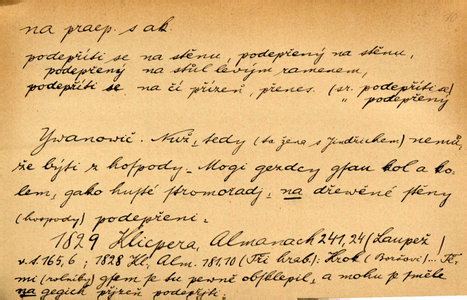 na praep. s ak.
podepříti se na stěnu, podepřený na stěnu,
podepřený na stůl levým ramenem,
podepříti se na čí přízeň, přenes. (sr. podepříti se)
" podepřený
Ywanowič. Nuž, tedy (ta žena s Jindřichem) nemů,
že býti z hospody. Mogi gezdcy gsau kol a ko,
lem, gako husté stromořadj, na dřewěné stěny
(hospody) podepřeni.
1829 Klicpera, Almanach 241,24 (Laupež)
v. t. 165,6; 1828 Kl. Alm. 181,10 (Tři hrab.): Krok
mi (rolníky) gsem je tu pewně obklepil, a mohu se směle
na gegich přjzeň podepřjti.